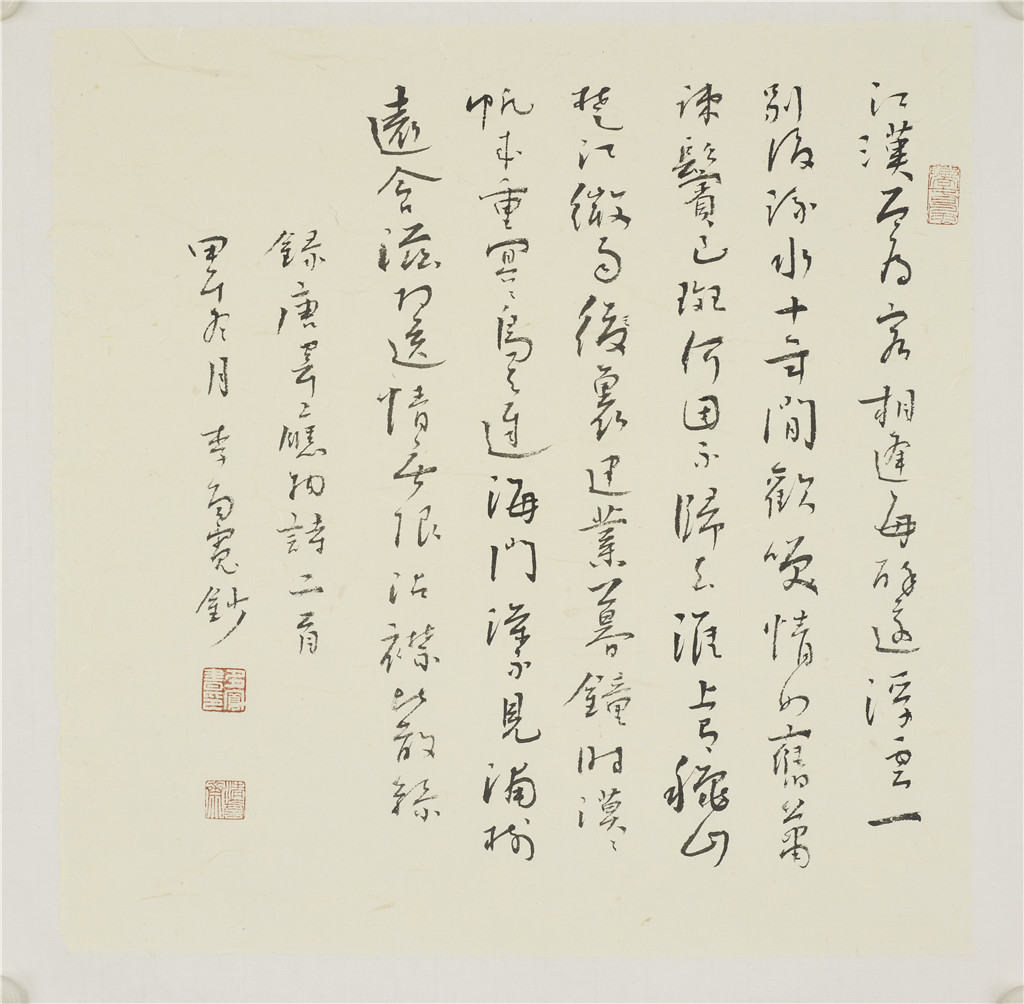 江漢曾為客相逢每醉還浮雲一
別後流水十年間歡笑情如舊蕭
疎鬢已斑何因不歸去淮上有秋山
楚江微雨後裏建業暮鐘時漠〻
帆來重冥〻鳥去遲海門深不見浦樹
遠含滋相送情無限沾襟比散絲
錄唐韋應物詩二首
甲午冬月 李 鈔